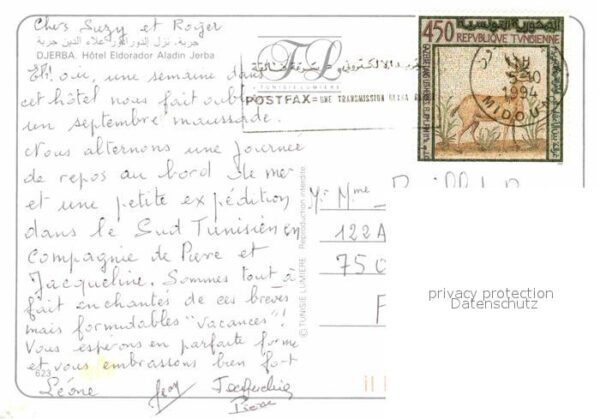 Chers Suzy et Roger
جربة، نزل إلدورادور علاء الدين جربة
DJERBA. Hôtel Eldorador Aladin Jerba
Eh oui, une semaine dans
cet hôtel nous fait oublier
un septembre maussade.
Nous alternons une journée
de repos au bord de mer
et une petite expédition
dans le Sud Tunisien en
Compagnie de Pierre et
Jacqueline. Sommes tout à
fait enchantés de ces brèves
mais formidables "vacances"!
Vous espérons en parfaite forme
et vous embrassons bien fort
623
Léone
Jacqueline
Pierre
TL
TUNISIE LUMIERE
POSTFAX = UNE TRANSMISSION
© TUNISIE LUMIERE Reproduction interdite
450
الجمهورية التونسية
REPUBLIQUE TUNISIENNE
5-10
1994
MIDOUN
Mr Mme
122 A
750
F
privacy protection
Datenschutz